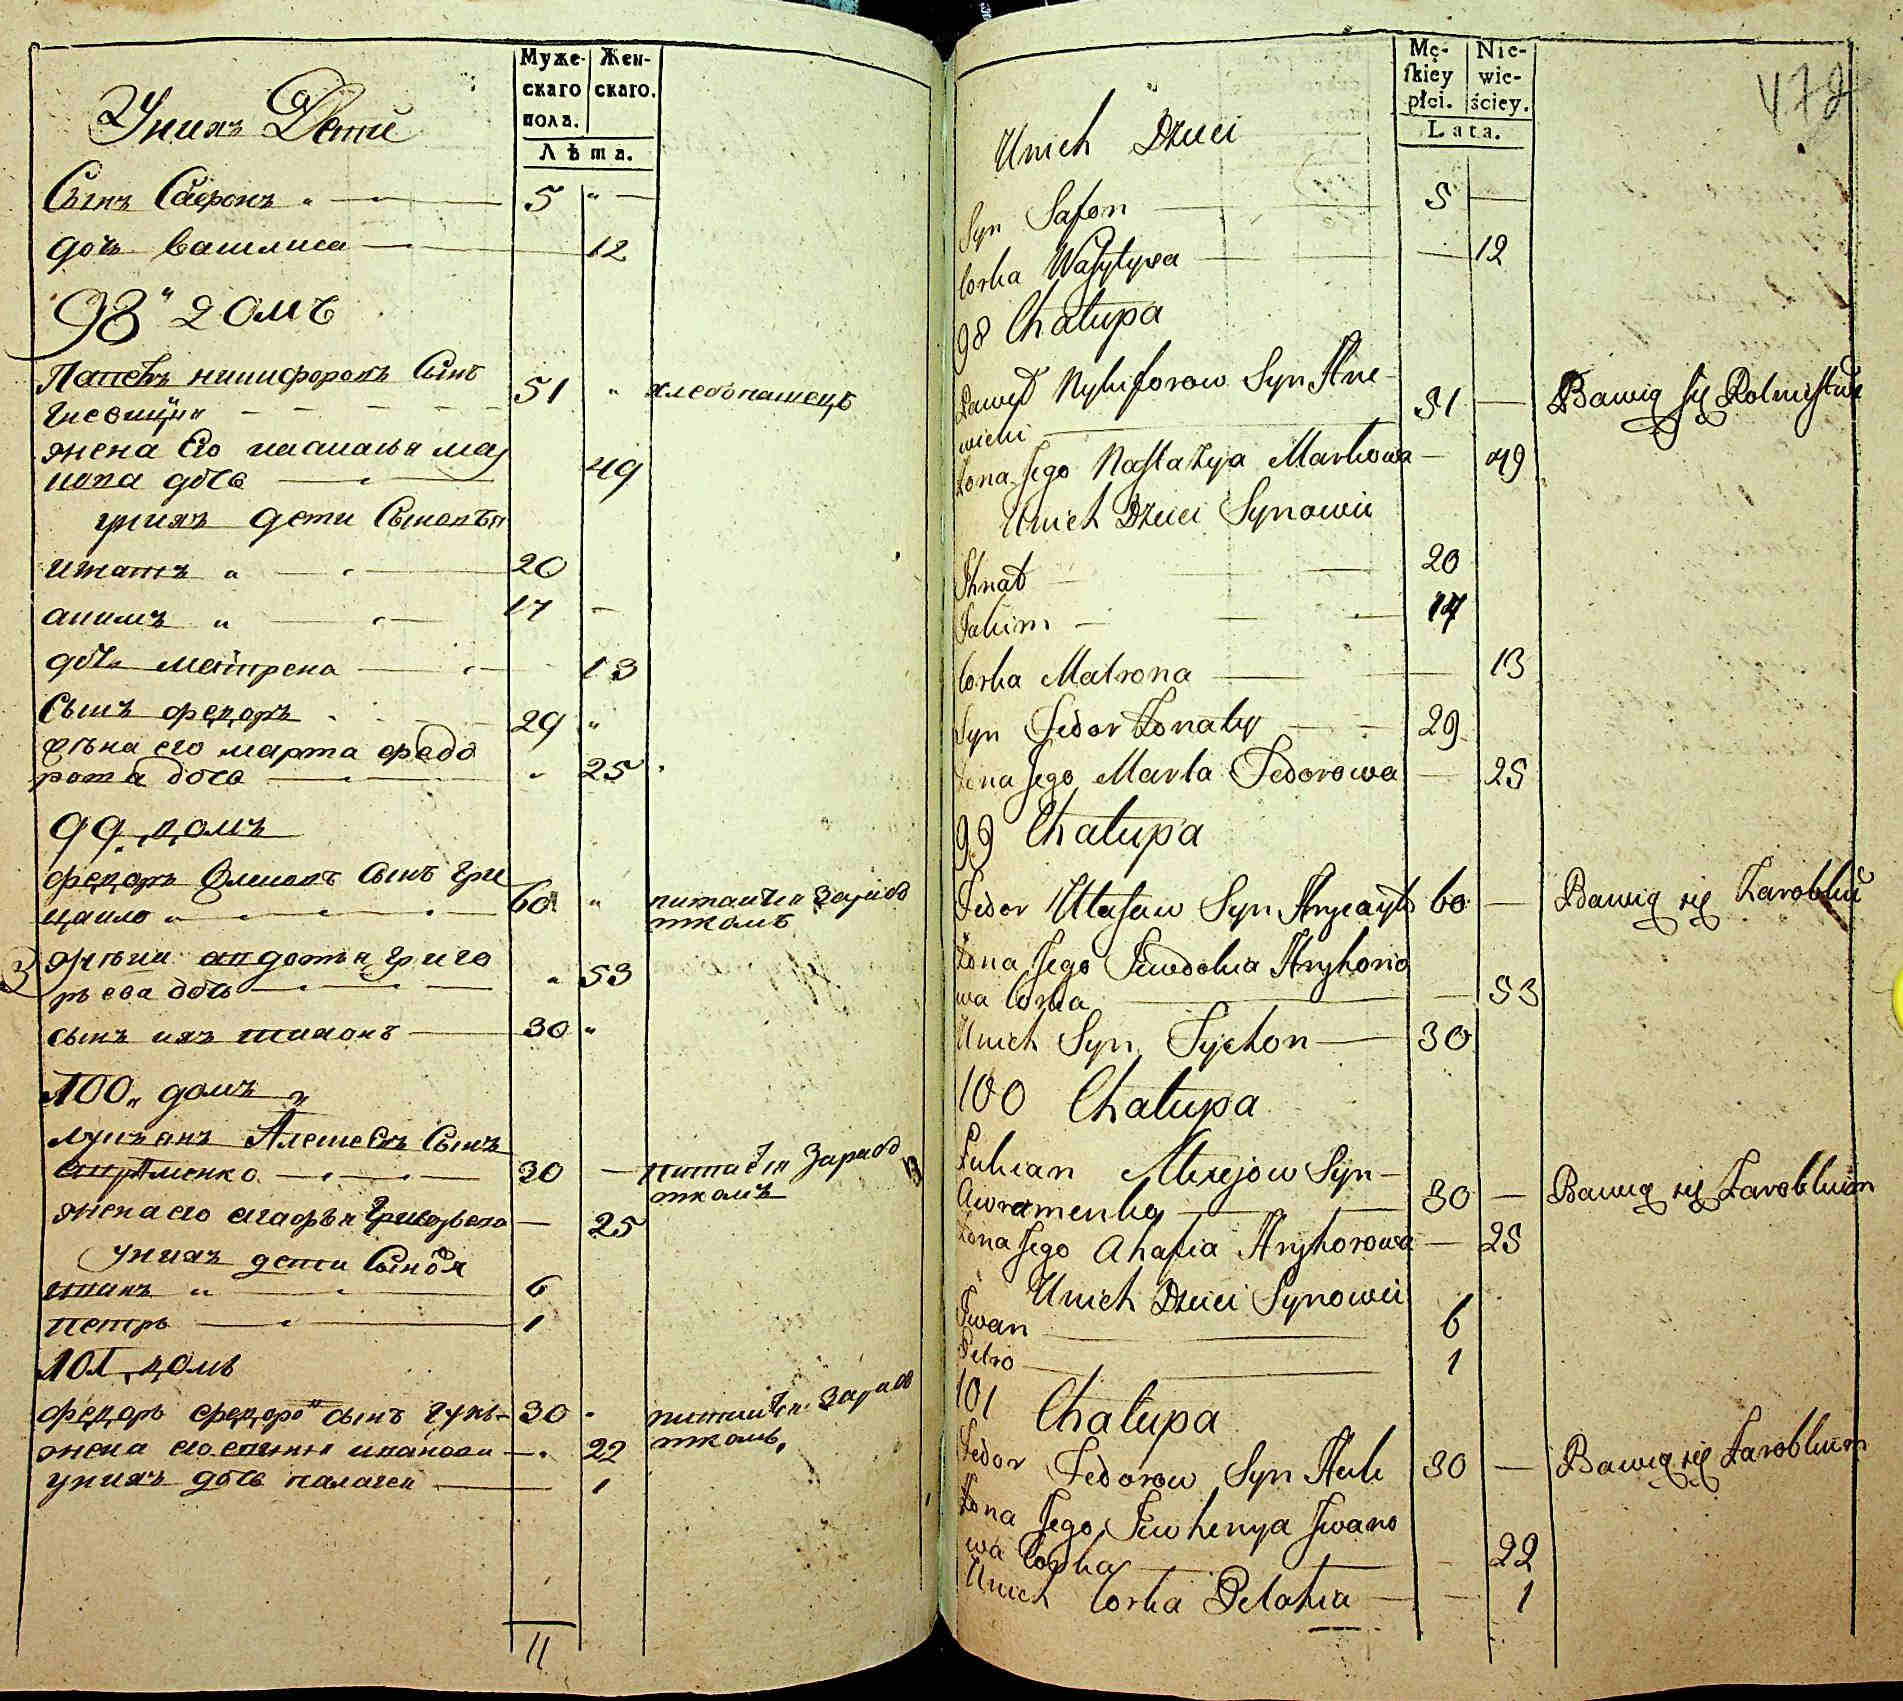 Муже-
скаго
пола.
Жен-
скаго.
Лѣта.
Унихъ Дети
Сынъ Сафонъ 5
дочь Василиса 12
98 домъ
Павелъ никифоровъ Сынъ 51 хлебопашецъ
жена Его настасья мар
кова дочь 49
унихъ дети Сыновья
игнатъ 20
акимъ 17
дочь матрена 13
Сынъ федоръ 29
жена его марта федо
рова дочь 25
99 домъ
федоръ сынъ Гри
цайло 60 питаится зарабо
ткомъ
жена авдотья григо
рьева дочь 53
сынъ ихъ тихонъ 30
100 домъ
лукьянъ Алексеевъ Сынъ
авраменко 30 питается Зарабо
ткомъ
жена его агафья Григорьева 25
Унихъ дети Сыновья
иванъ 6
петръ 1
101 домъ
федоръ федоровъ сынъ гукъ 30 питаится Зарабо
ткомъ
жена его евгения иванова 22
унихъ дочь палагея 1
11
Mę-
skiey
płci.
Nie-
wie-
ściey.
Lata.
472
Unich Dzieci
Syn Safon 5
Corka Wasylysa 12
98 Chałupa
Paweł Nykiforow Syn Hne-
wicki 51 Bawią się Rolnictwem
Żona Jego Nastazya Markowa 49
Unich Dzieci Synowie
Ihnat 20
Jakim 17
Corka Matrona 13
Syn Fedor Żonaty 29
Żona Jego Marta Fedorowa 25
99 Chałupa
Fedor Syn Hrycayło 60 Bawią się Zarobkiem
Żona Jego Jewdokia Hryhorio
wa Corka 53
Unich Syn Tychon 30
100 Chałupa
Łukian Alexejow Syn
Awramenko 30 Bawią się Zarobkiem
Żona Jego Ahafia Hryhorowa 25
Unich Dzieci Synowie
Jwan 6
Petro 1
101 Chałupa
Fedor Fedorow Syn Huk 30 Bawią się Zarobkiem
Żona Jego Jewhenya Jwano
wa Corka 22
Unich Corka Pelahia 1